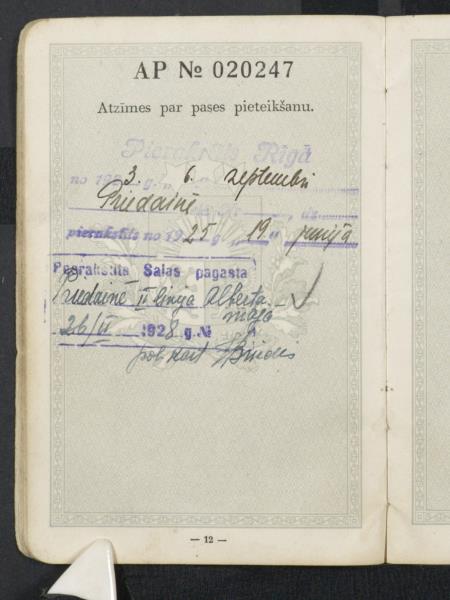 AP № 020247
Atzīmes par pases pieteikšanu.
Pierakstīts Rīgā
no 1923. g. „ 6. „ septembri
Priedainē
pierakstīts no 1925 g. „ 19 „ junija
Pierakstīts Salas pagasta
Priedainē II linija Alberta
māja
26/II 1928 g. №